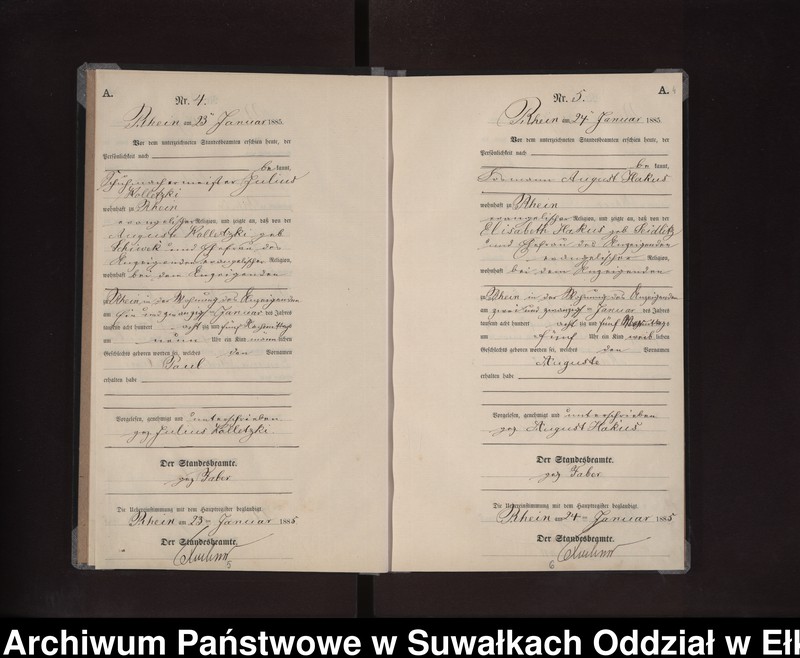 A.
Nr. 4.
Rhein am 23ten Januar 1885.
Vor dem unterzeichneten Standesbeamten erschien heute, der
Persönlichkeit nach
be kannt,
Schuhmachermeister Julius
Kolletzki
wohnhaft zu Rhein
evangelischer Religion, und zeigte an, daß von der
Auguste Kolletzki geb
und Ehefrau des
Anzeigenden evangelischer Religion,
wohnhaft bei dem Anzeigenden
zu Rhein in der Wohnung des Anzeigenden
am ein und zwanzigsten Januar des Jahres
tausend acht hundert achtzig und fünf Nachmittags
um neun Uhr ein Kind männlichen
Geschlechts geboren worden sei, welches den Vornamen
Paul
erhalten habe
Vorgelesen, genehmigt und unterschrieben
gez Julius Kolletzki
Der Standesbeamte.
gez Faber
Die Uebereinstimmung mit dem Hauptregister beglaubigt.
Rhein am 23ten Januar 1885
Der Standesbeamte.
5
A.
Nr. 5.
Rhein am 24ten Januar 1885.
Vor dem unterzeichneten Standesbeamten erschien heute, der
Persönlichkeit nach
be kannt,
August Hakus
wohnhaft zu Rhein
evangelischer Religion, und zeigte an, daß von der
Elisabeth Hakus geb Seidlitz
und Ehefrau des Anzeigenden
evangelischer Religion,
wohnhaft bei dem Anzeigenden
zu Rhein in der Wohnung des Anzeigenden
am zwei und zwanzigsten Januar des Jahres
tausend acht hundert achtzig und fünf
um fünf Uhr ein Kind weiblichen
Geschlechts geboren worden sei, welches den Vornamen
Auguste
erhalten habe
Vorgelesen, genehmigt und unterschrieben
gez August Hakus
Der Standesbeamte.
gez Faber
Die Uebereinstimmung mit dem Hauptregister beglaubigt.
Rhein am 24ten Januar 1885
Der Standesbeamte.
6
Archiwum Państwowe w Suwałkach Oddział w Ełk